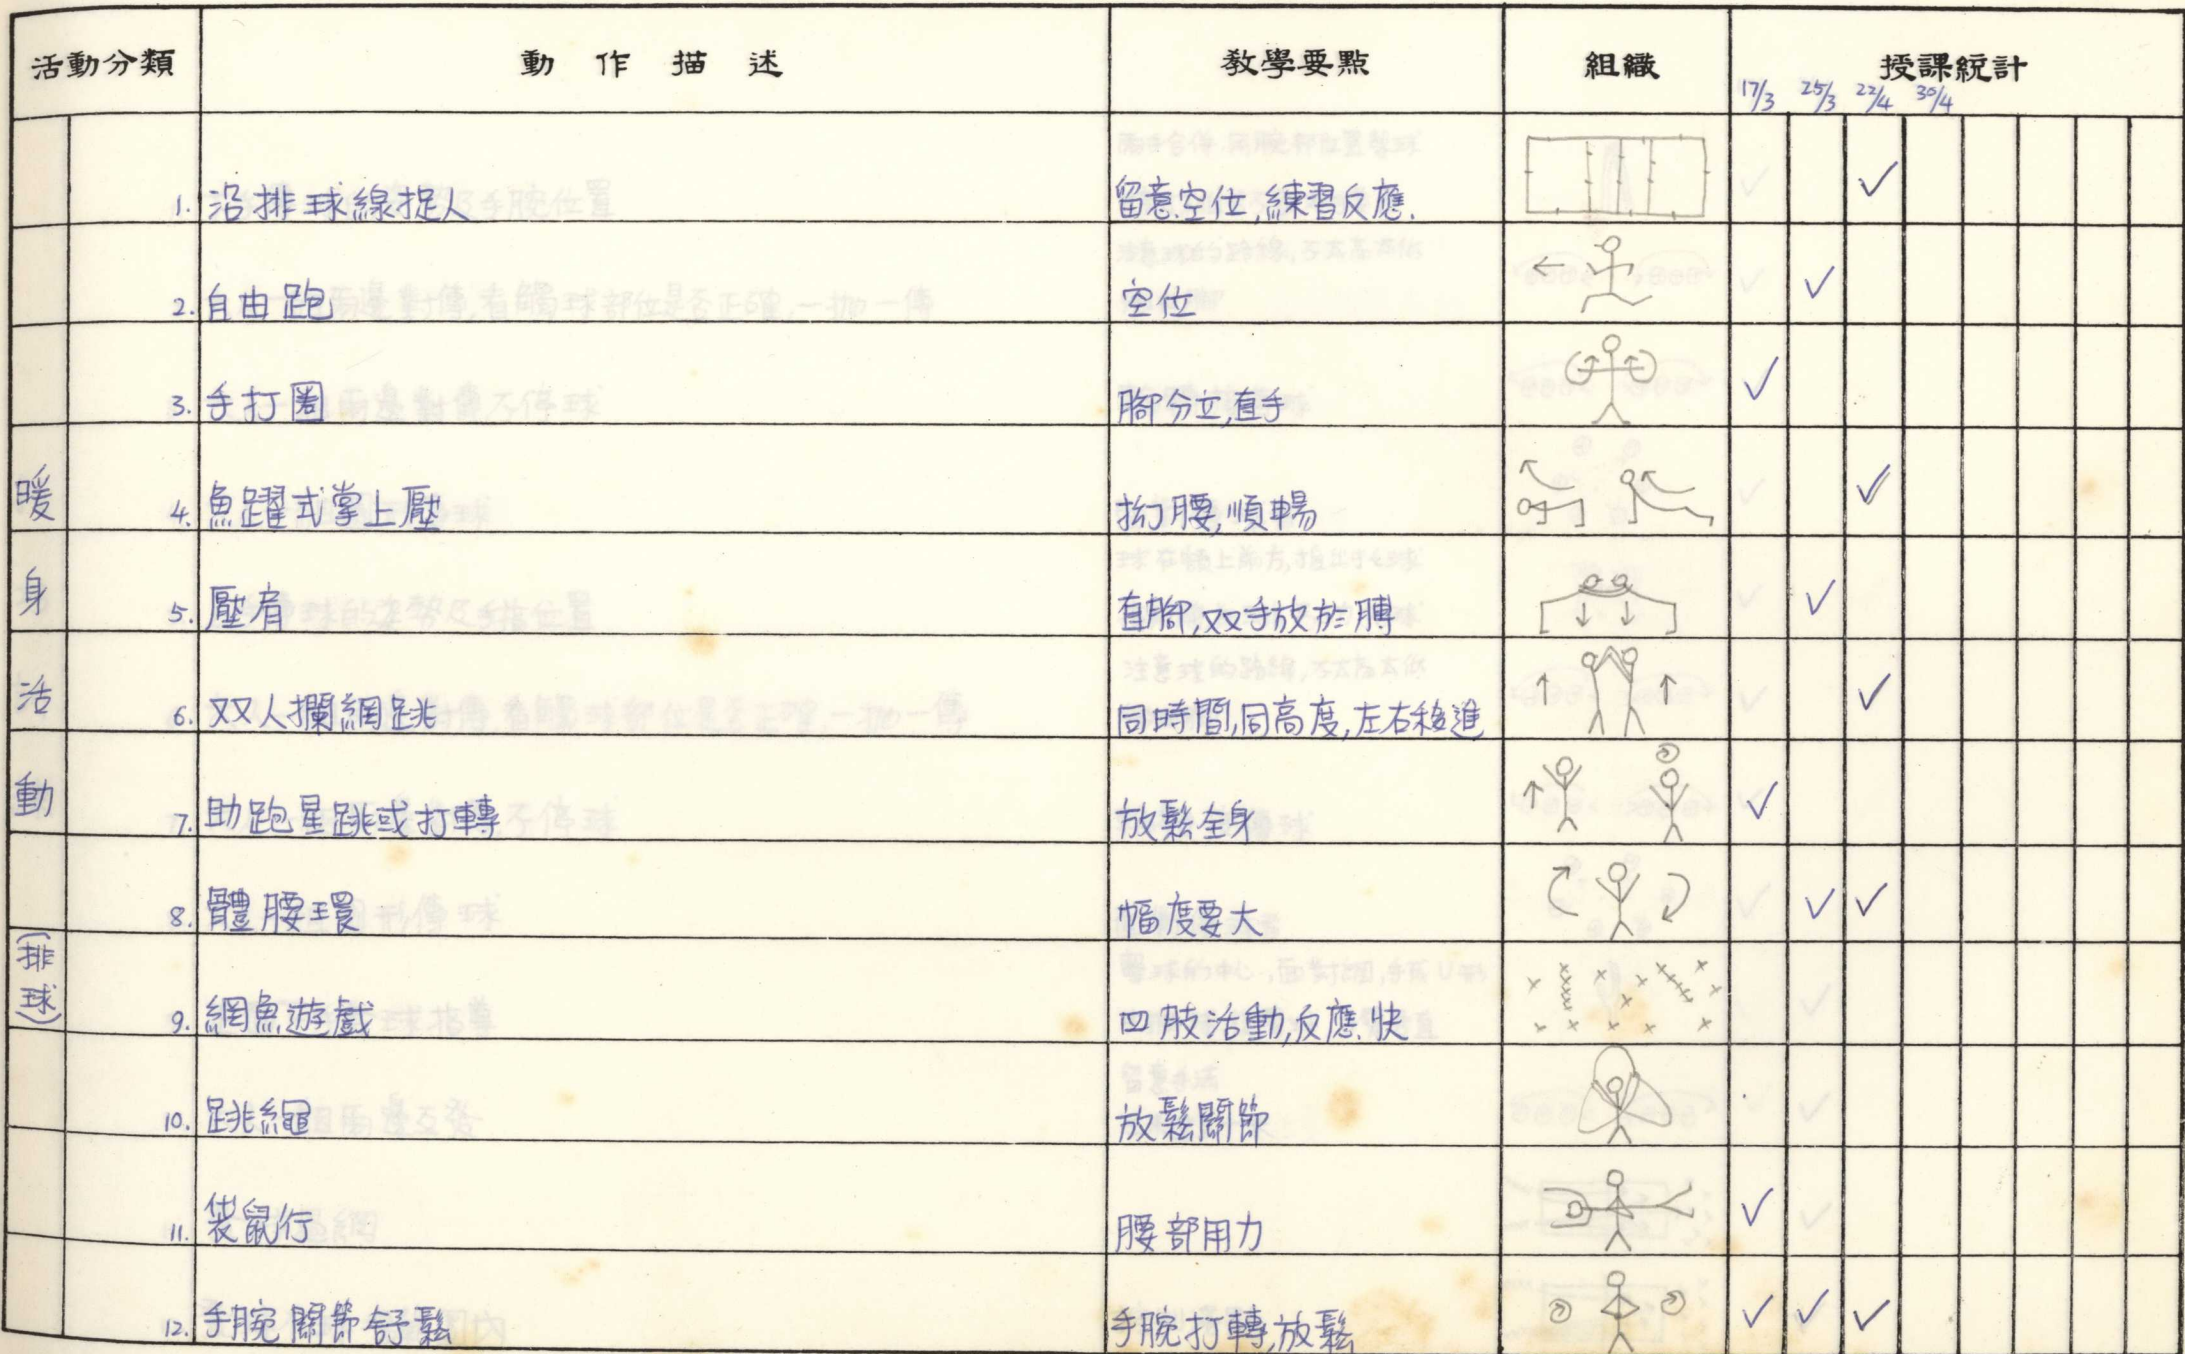 活動分類 動作描述 教學要點 組織 授課統計
17/3 25/3 22/4 30/4
暖身活動(排球)
1. 沿排球線捉人 留意空位,練習反應.
2. 自由跑 空位
3. 手打圈 腳分立,直手
4. 魚躍式掌上壓 拗腰,順暢
5. 壓肩 直腳,双手放於膊
6. 双人攔網跳 同時間,同高度,左右移進
7. 助跑星跳或打轉 放鬆全身
8. 體腰環 幅度要大
9. 網魚遊戲 四肢活動,反應快
10. 跳繩 放鬆關節
11. 袋鼠行 腰部用力
12. 手腕關節舒鬆 手腕打轉,放鬆